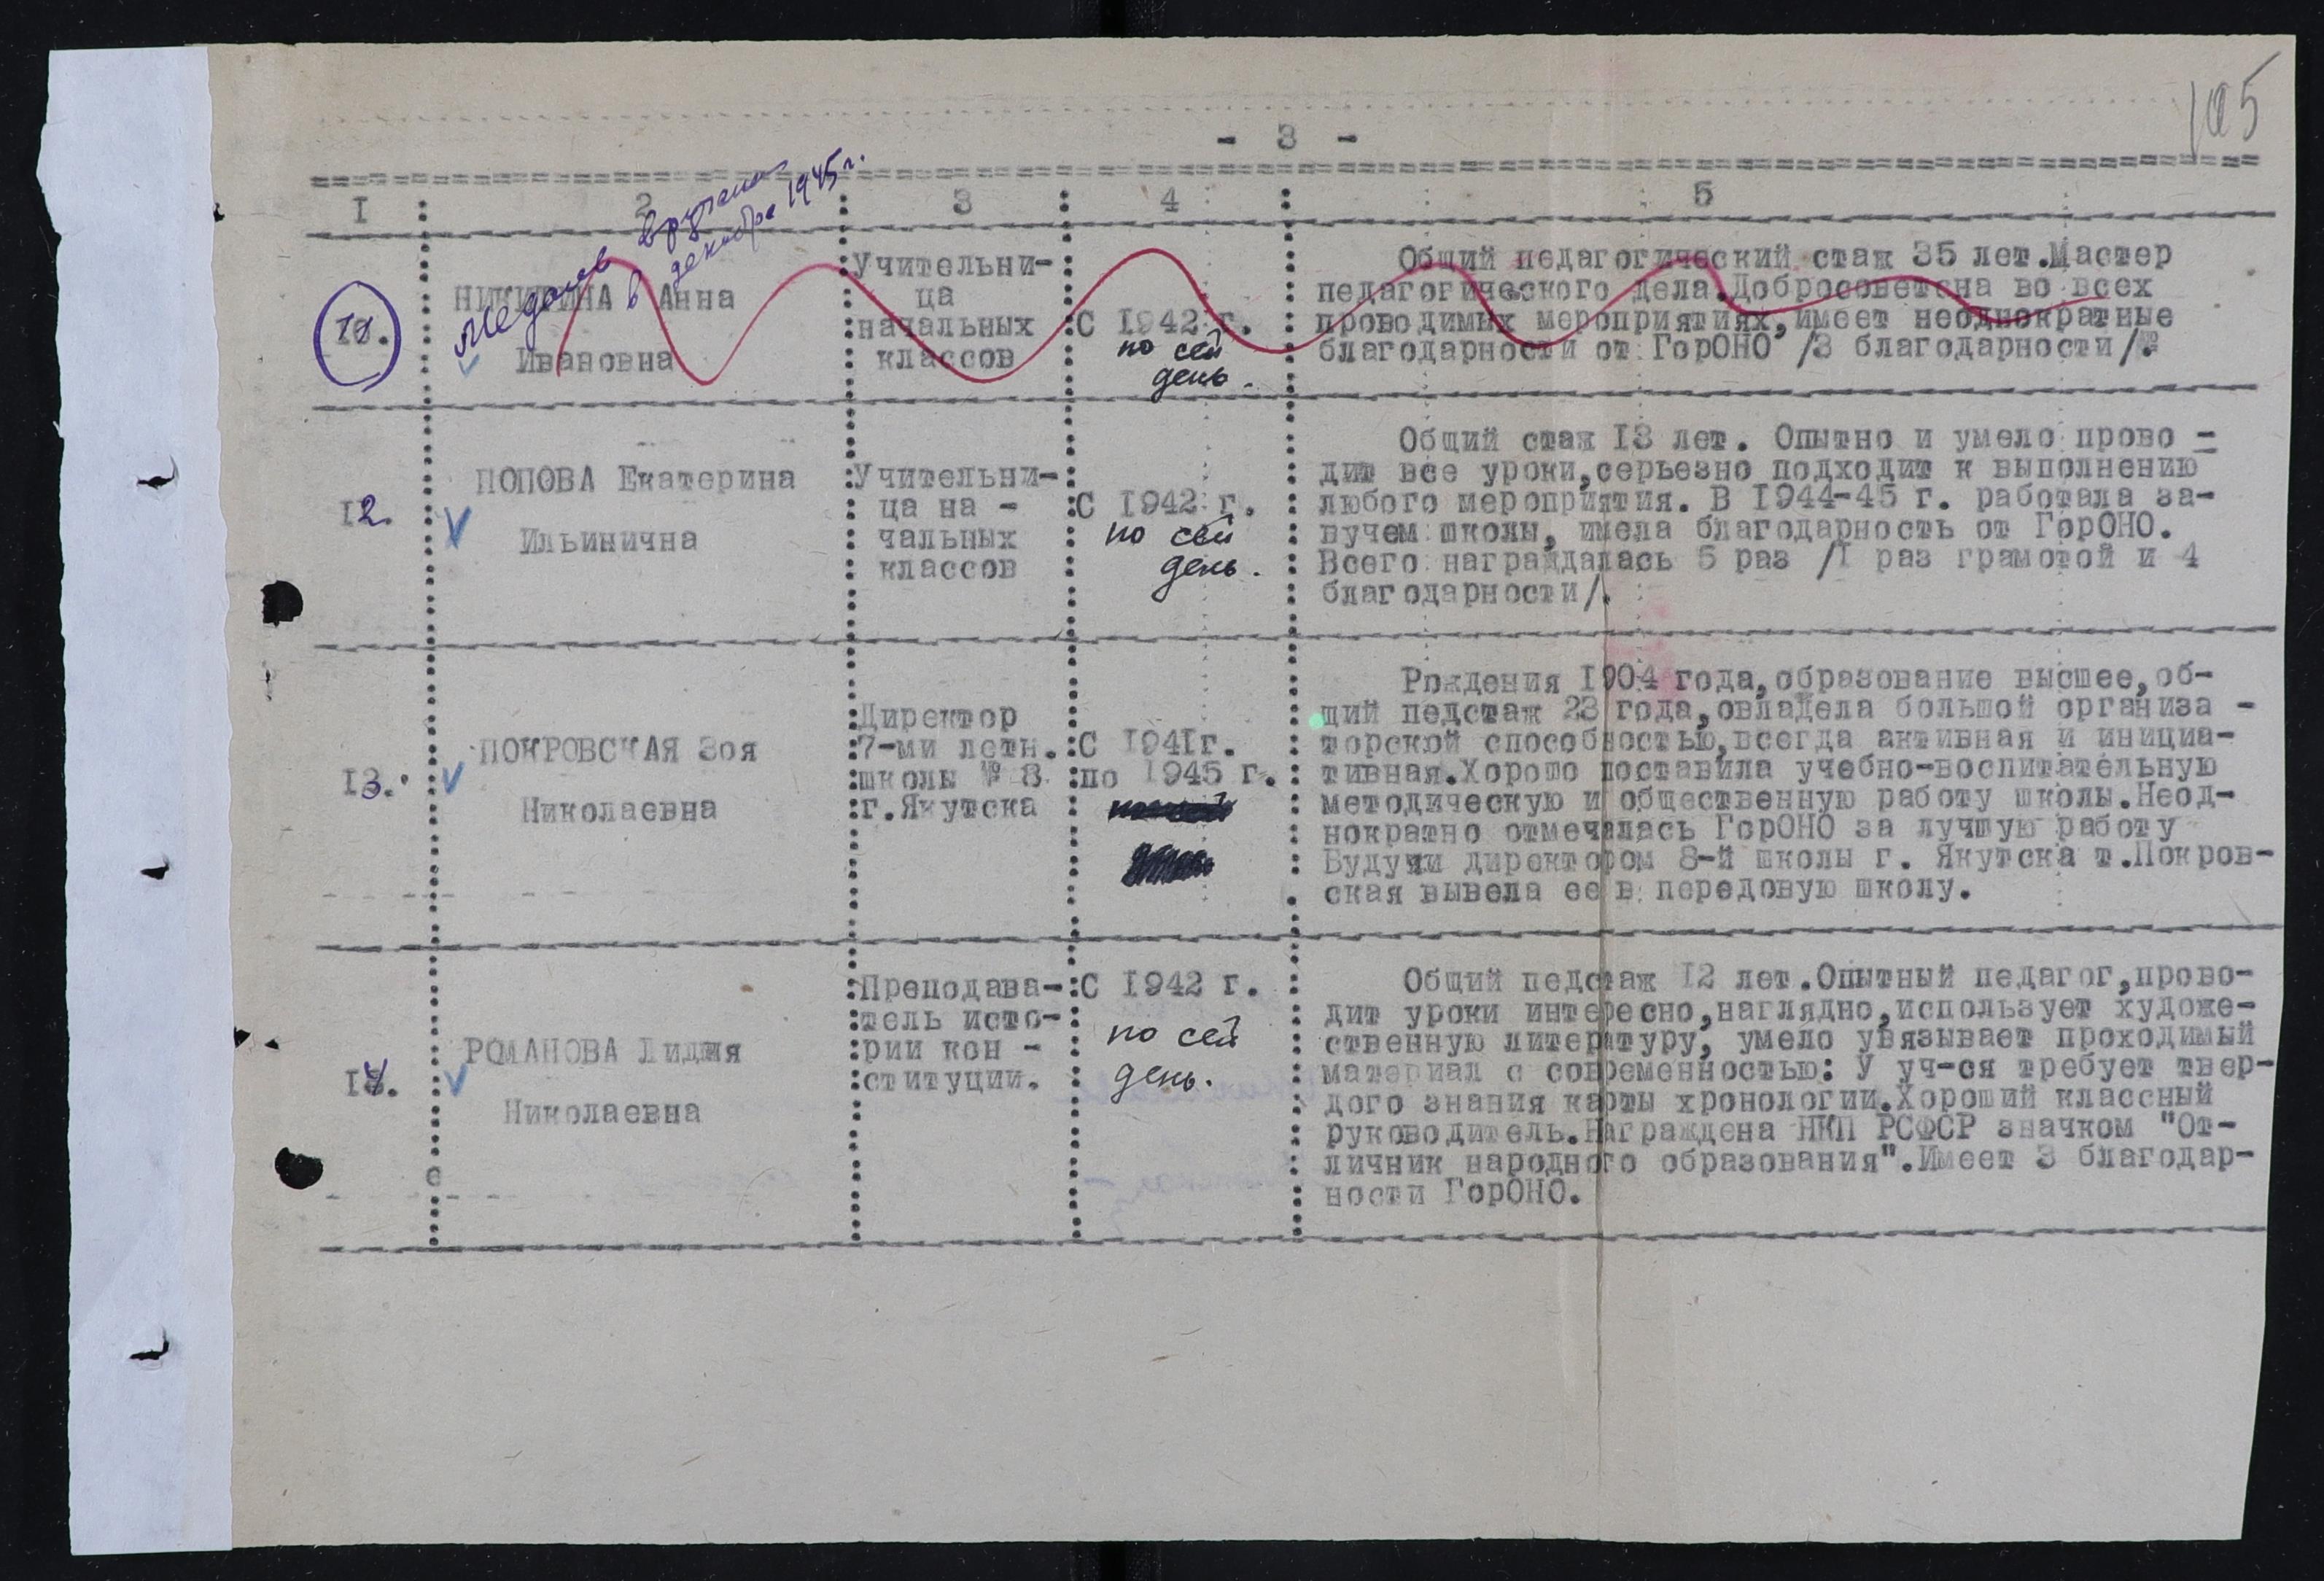 105
- 3 -
I 2 3 4 5
Медаль вручена
в декабре 1945 г.
11.
НИКИТИНА Анна
Ивановна
Учительни-
ца
начальных
классов
С 1942 г.
по сей
день.
Общий педагогический стаж 35 лет.Мастер
педагогического дела.Добросоветсна во всех
проводимых мероприятиях,имеет неоднократные
благодарности от ГорОНО /3 благодарности/.
12.
ПОПОВА Екатерина
Ильинична
Учительни-
ца на -
чальных
классов
С 1942 г.
по сей
день.
Общий стаж 13 лет. Опытно и умело прово -
дит все уроки,серьезно подходит к выполнению
любого мероприятия. В 1944-45 г. работала за-
вучем школы, имела благодарность от ГорОНО.
Всего награждалась 5 раз /1 раз грамотой и 4
благодарности/.
13.
ПОКРОВСКАЯ Зоя
Николаевна
Директор
7-ми летн.
школы № 8
г.Якутска
С 1941г.
по 1945 г.
Рождения 1904 года,образование высшее,об-
щий педстаж 23 года,овладела большой организа -
торской способностью,всегда активная и инициа-
тивная.Хорошо поставила учебно-воспитательную
методическую и общественную работу школы.Неод-
нократно отмечалась ГорОНО за лучшую работу
Будучи директором 8-й школы г. Якутска т.Покров-
ская вывела ее в передовую школу.
14.
РОМАНОВА Лидия
Николаевна
Преподава-
тель исто-
рии кон -
ституции.
С 1942 г.
по сей
день.
Общий педстаж 12 лет.Опытный педагог,прово-
дит уроки интересно,наглядно,использует художе-
ственную литературу, умело увязывает проходимый
материал с современностью: У уч-ся требует твер-
дого знания карты хронологии.Хороший классный
руководитель.Награждена НКП РСФСР значком "От-
личник народного образования".Имеет 3 благодар-
ности ГорОНО.